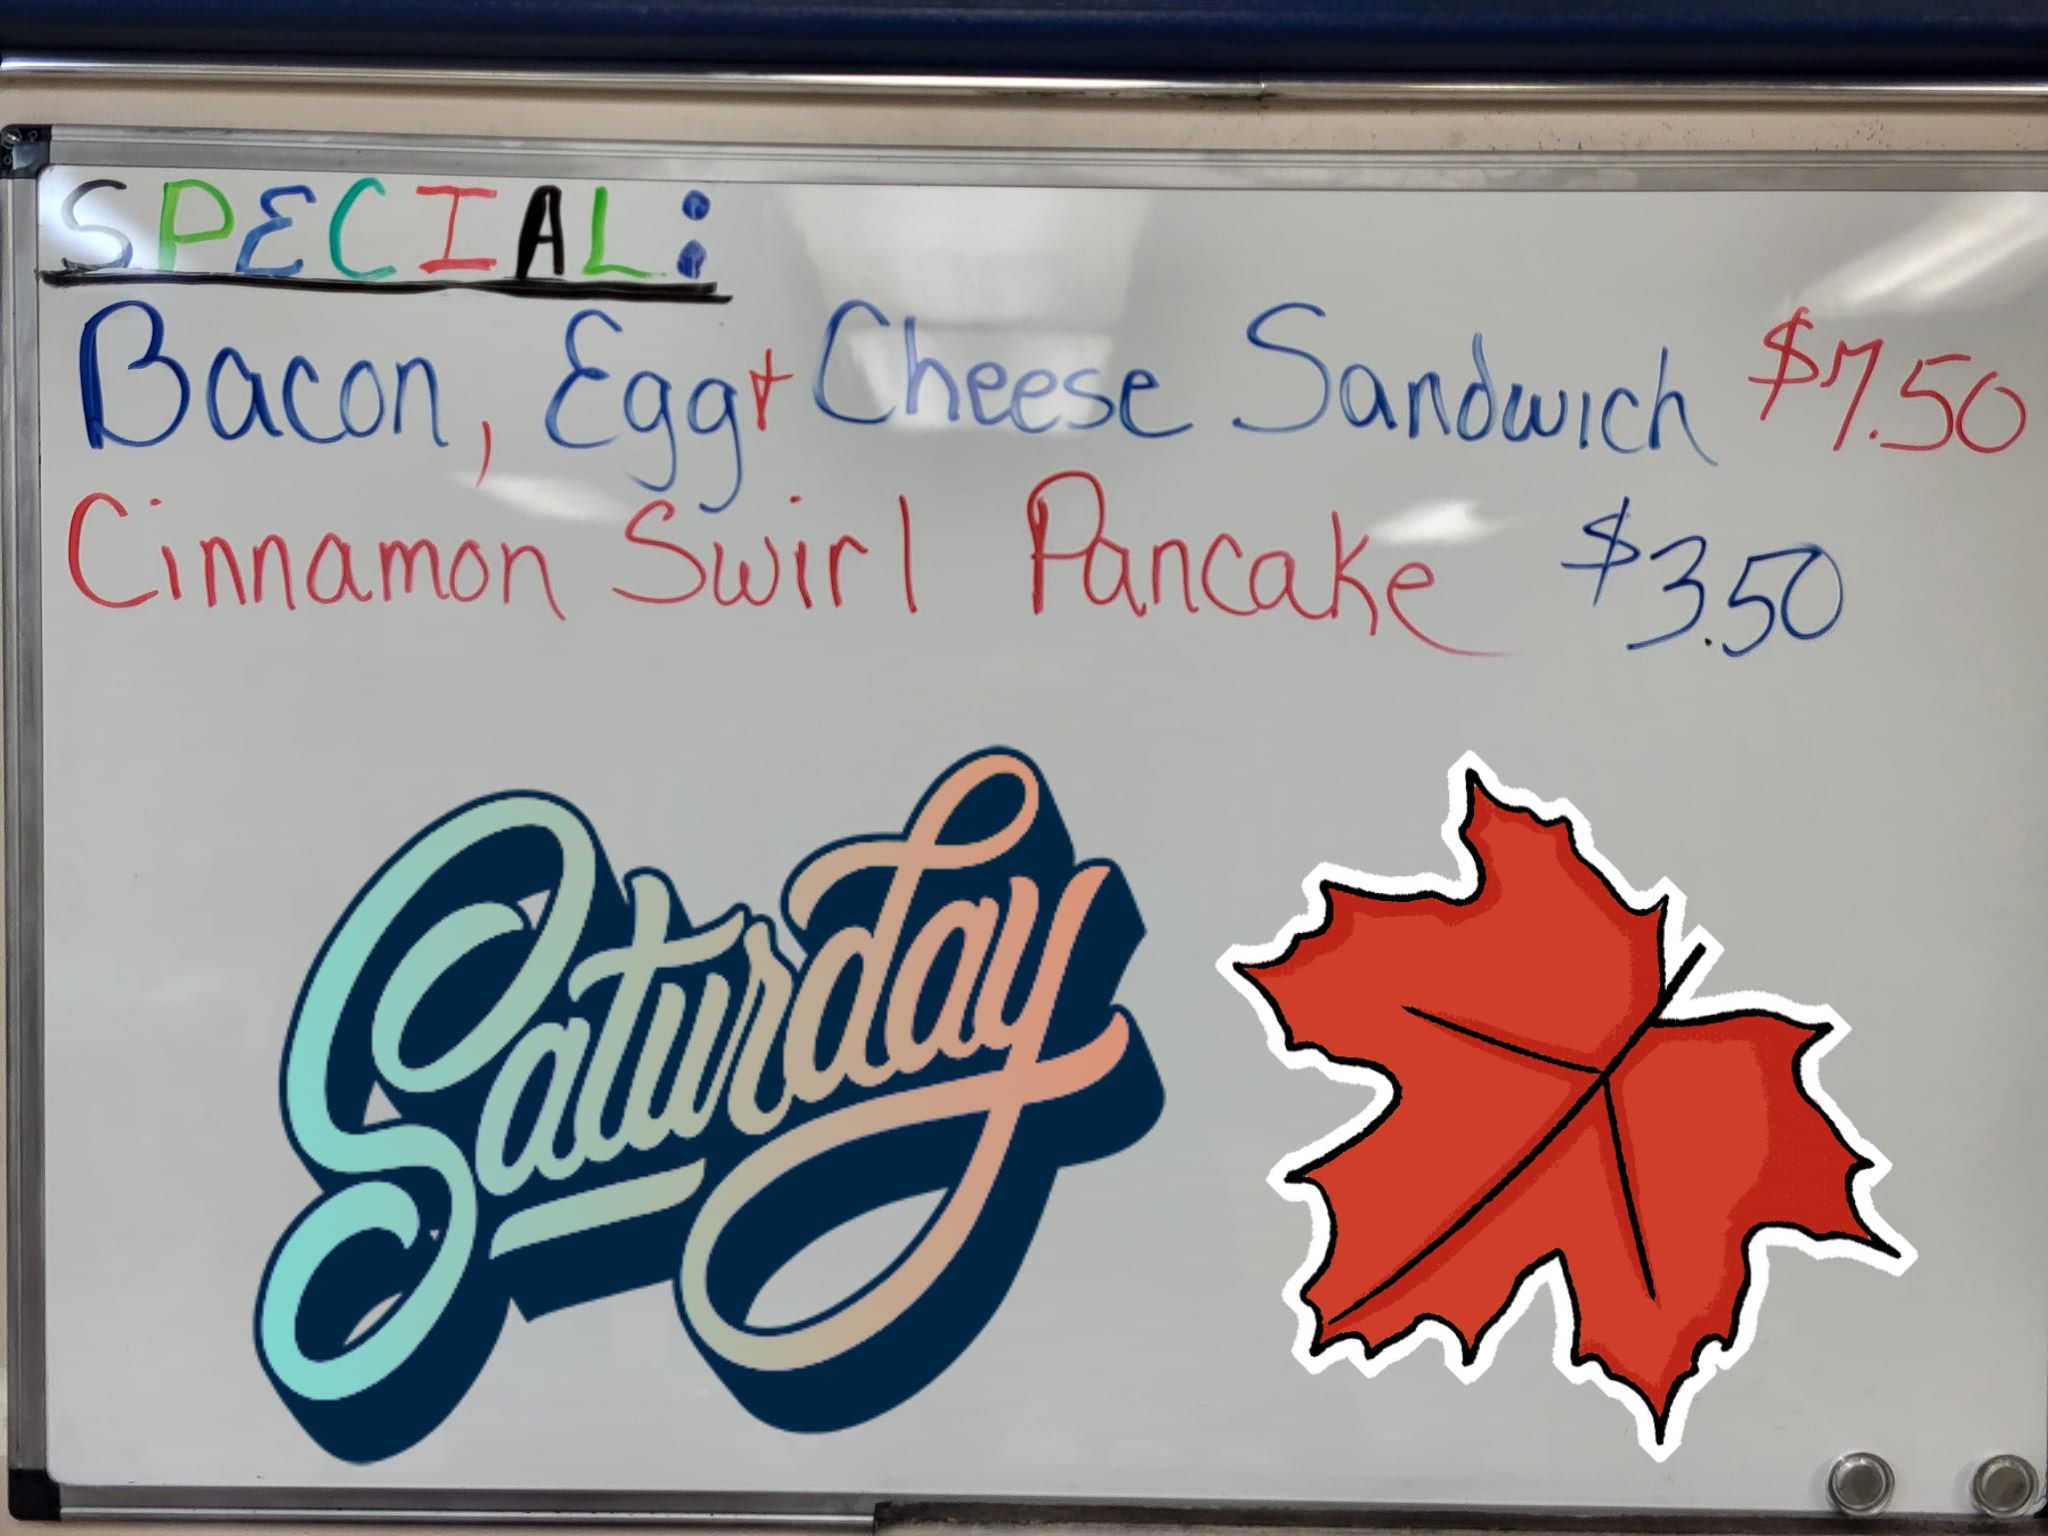 SPECIAL:
Bacon, Egg + Cheese Sandwich $7.50
Cinnamon Swirl Pancake $3.50
Saturday